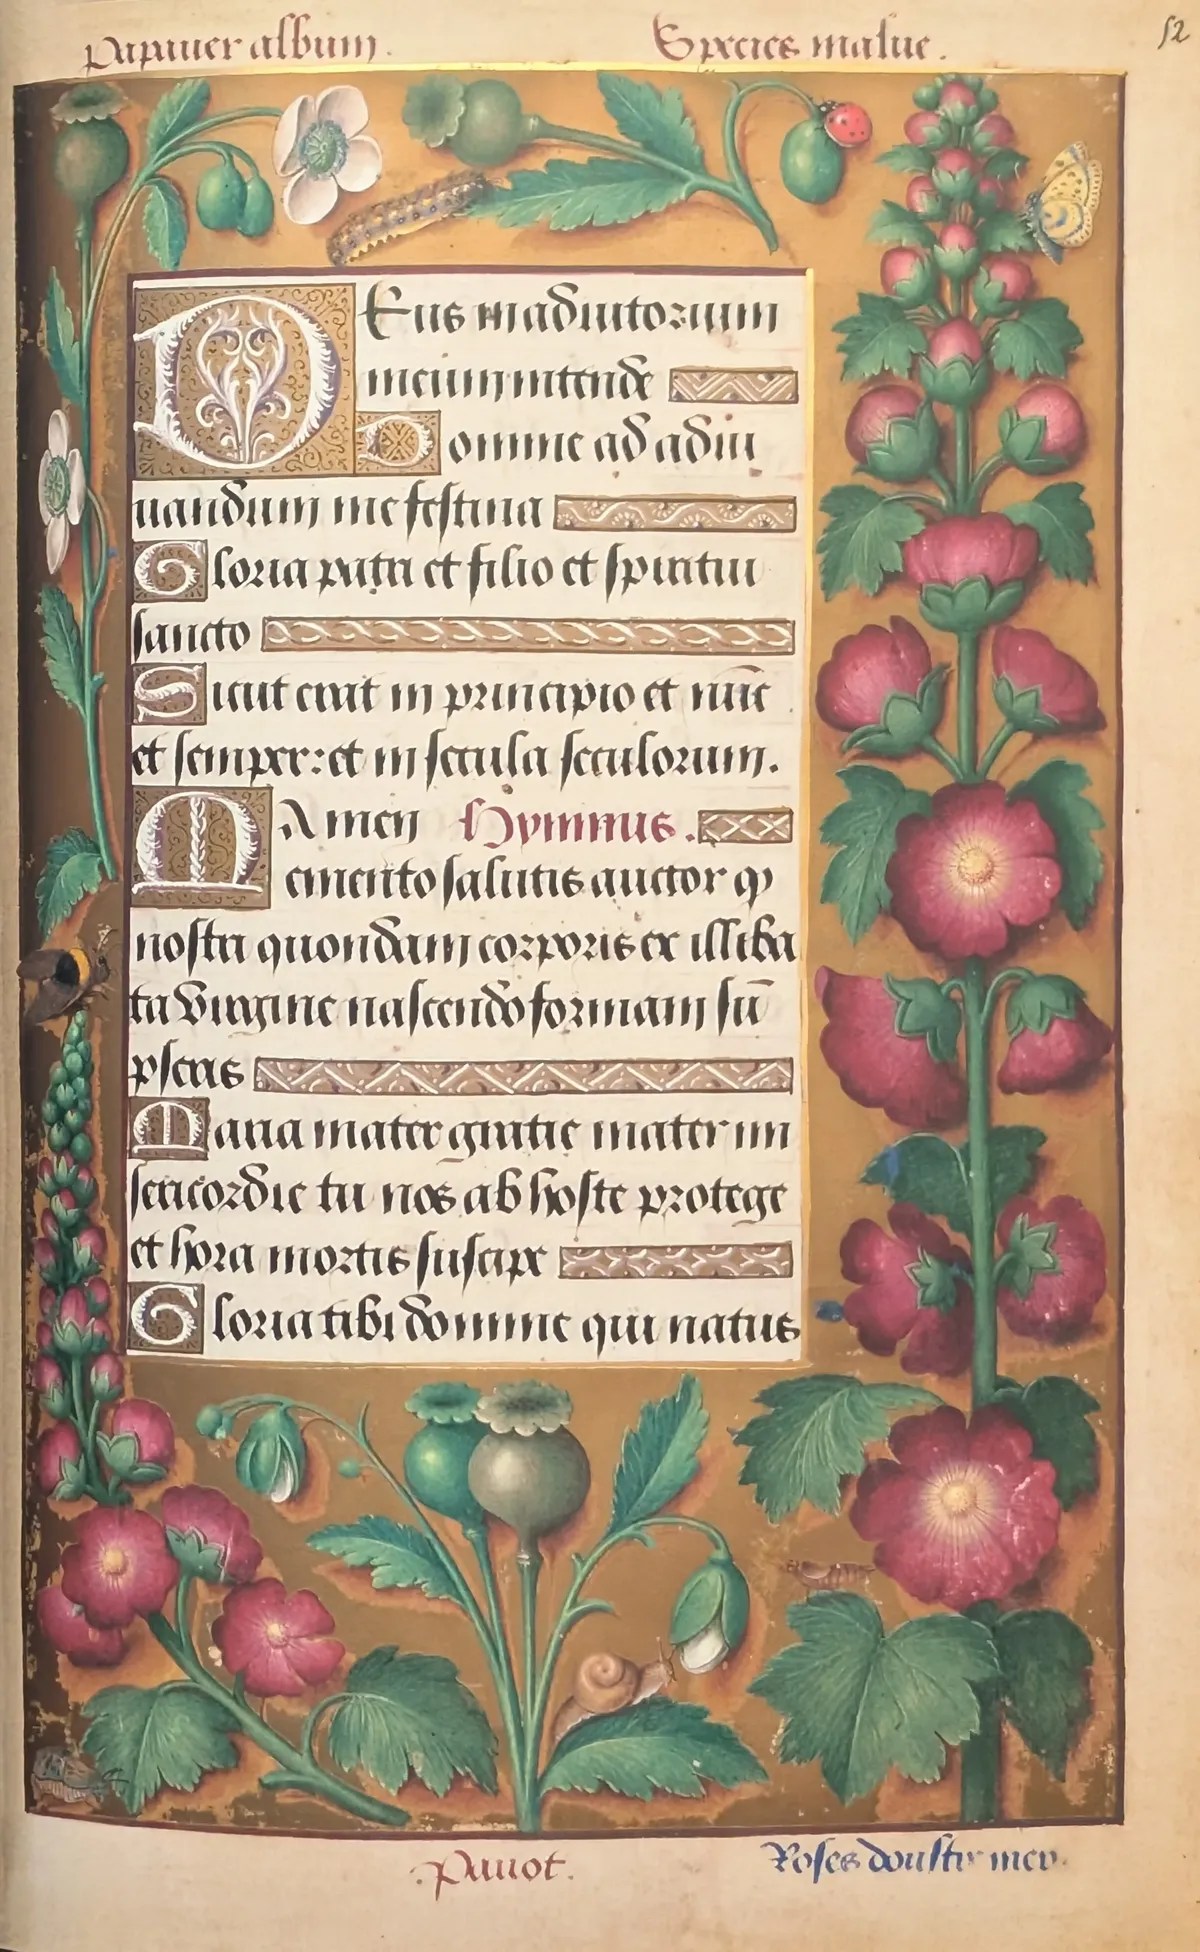 Papauer album.
Species malue.
52
Deus in adiutorium
meum intende
Domine ad adiu
uandum me festina
Gloria patri et filio et spiritui
sancto
Sicut erat in principio et nūc
et semper: et in secula seculorum.
Amen Hymnus.
Memento salutis auctor ꝙ
nostri quondam corporis ex illiba
ta virgine nascendo formam sū
pseris
Maria mater gratie mater mi
sericordie tu nos ab hoste protege
et hora mortis suscipe
Gloria tibi domine qui natus
Pauot.
Roses doustre mer.